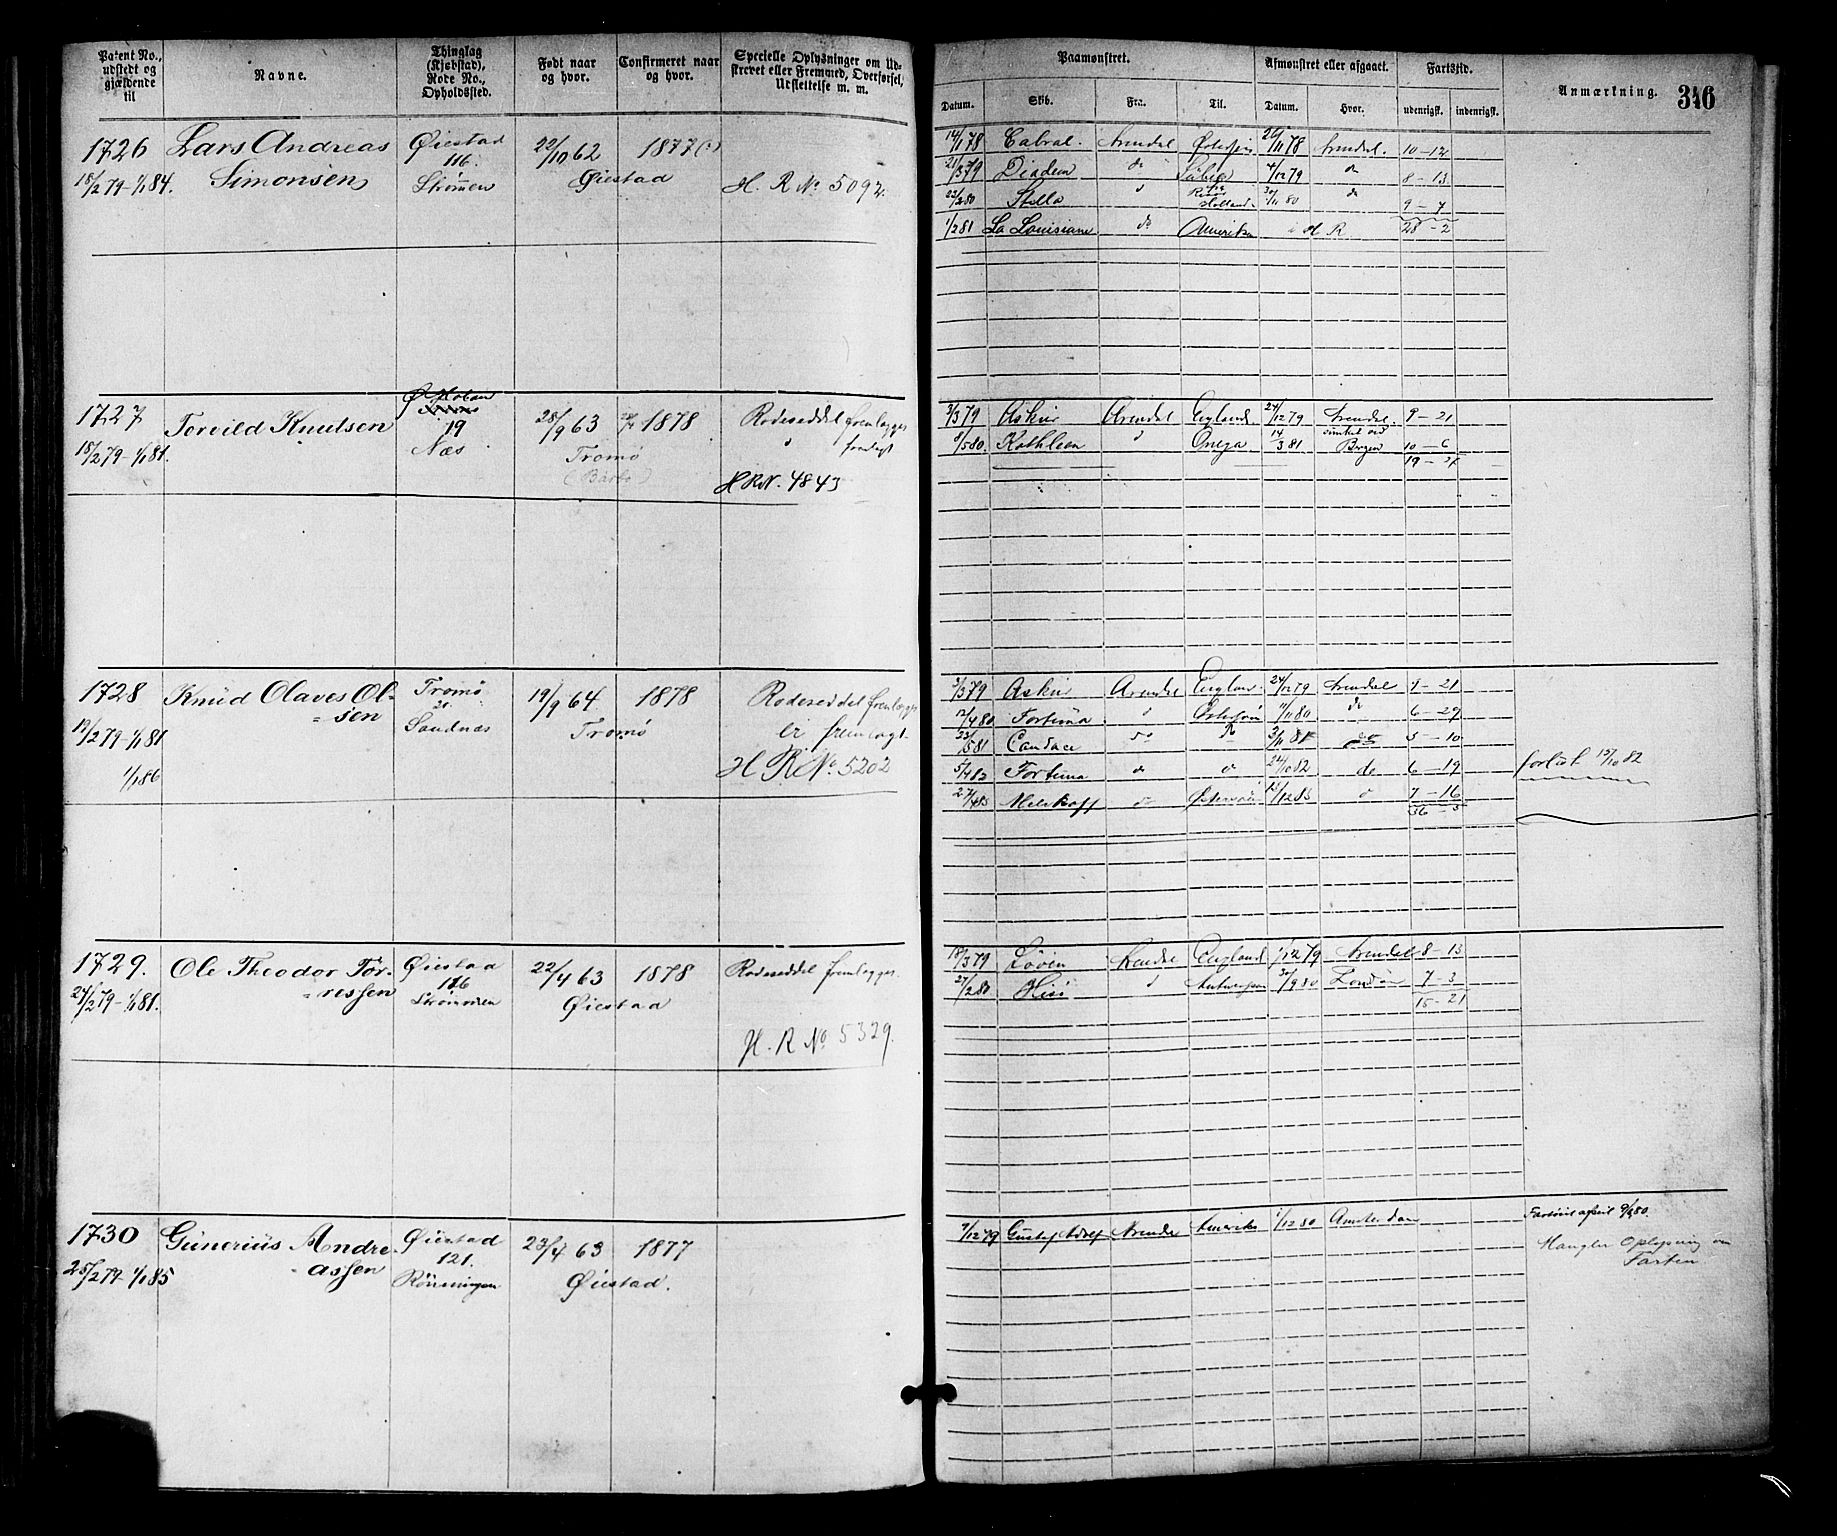 Patent No., udstedt og gjældende til
Navne.
Thinglag (Kjøbstad), Rode No., Opholdssted.
Født naar og hvor.
Confirmeret naar og hvor.
Specielle Oplysninger om Udskrevet eller Fremmed, Overførsel, Udslettelse m. m.
Paamønstret.
Afmønstret eller afgaaet.
Fartstid.
Anmærkning.
346
Datum. Skib. Fra. Til. Datum. Hvor. udenrigsk. indenrigsk.
1726 Lars Andreas Øiestad 22/10 62 1877
18/2 79-1/1 84. Simonsen 116. Øiestad
Strømen H. R No. 5092.
14/1 78 Cabral. Arendal 78 Arendal. 10-12
21/3 79 Diadem do 4/12 79 do 8-13
80 Stella Holland 80 do 9-7
1/2 81 La Louisiane do Amerika H R 28-2
1727 Torvild Knutsen 19 28/9 63 1878 Rodeseddel fremlægges
18/2 79-1/1 81. Næs Tromø fremlagt
(Barbo) H R N. 4843
3/3 79 Askur Arendal England 24/12 79 Arendal. 9-21
8/5 80 Kathleen Onega 14/3 81 Bergen 10-6
1728 Knud Olaves Ol- Tromø 19/9 64 1878 Rodeseddel fremlægges
sen Sandnæs Tromø er fremlagt.
19/2 79-1/1 81 H R No. 5202
1/1 86
3/3 79 Askur Arendal England 24/12 79 Arendal 9-21
12/4 80 Fortuna 11/11 80 do 6-29
81 Candace do 3/11 81 5-10
5/4 82 Fortuna do 24/10 82 do 6-19 forlist 15/10 82
Østersøen 7-16
36-5
1729. Ole Theodor Tor- Øiestad 22/4 63 1878 Rodeseddel fremlægges.
24/2 79-1/1 81. ressen 116 Øiestad
Strømmen
H. R No 5329.
18/3 79 Løven Arendal England 1/12 79 Arendal 8-13
27/2 80 Hisø Antwerpen 80 London 7-3
15-21
1730 Gunerius Andre- Øiestad 23/4 63 1877
25/2 79-1/1 85 assen 121. Øiestad.
Rönningen
7/12 79 Gustaf Adolf Arendal Amerika 1/12 80 Amsterdam
Mangler Oplysning om
Farten